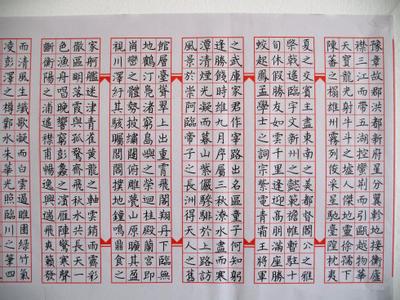 豫章故郡洪都新府星分翼軫地接衡廬
襟三江而帶五湖控蠻荊而引甌越物華
天寶龍光射牛斗之墟人傑地靈徐孺下
陳蕃之榻雄州霧列俊采星馳臺隍枕夷
夏之交賓主盡東南之美都督閻公之雅
棨戟遙臨宇文新州之懿範襜帷暫駐十
旬休假勝友如雲千里逢迎高朋滿座騰
蛟起鳳孟學士之詞宗紫電青霜王將軍
之武庫家君作宰路出名區童子何知躬
逢勝餞時維九月序屬三秋潦水盡而寒
潭清煙光凝而暮山紫儼驂騑於上路訪
風景於崇阿臨帝子之長洲得天人之舊
館層臺聳翠上出重霄飛閣翔丹下臨無
地鶴汀鳧渚窮島嶼之縈迴桂殿蘭宮即
岡巒之體勢披繡闥俯雕甍山原曠其盈
視川澤紆其駭矚閭閻撲地鐘鳴鼎食之
家舸艦迷津青雀黃龍之軸雲銷雨霽彩
徹區明落霞與孤鶩齊飛秋水共長天一
色漁舟唱晚響窮彭蠡之濱雁陣驚寒聲
斷衡陽之浦遙襟甫暢逸興遄飛爽籟發
而清風生纖歌凝而白雲遏睢園綠竹氣
凌彭澤之樽鄴水朱華光照臨川之筆四